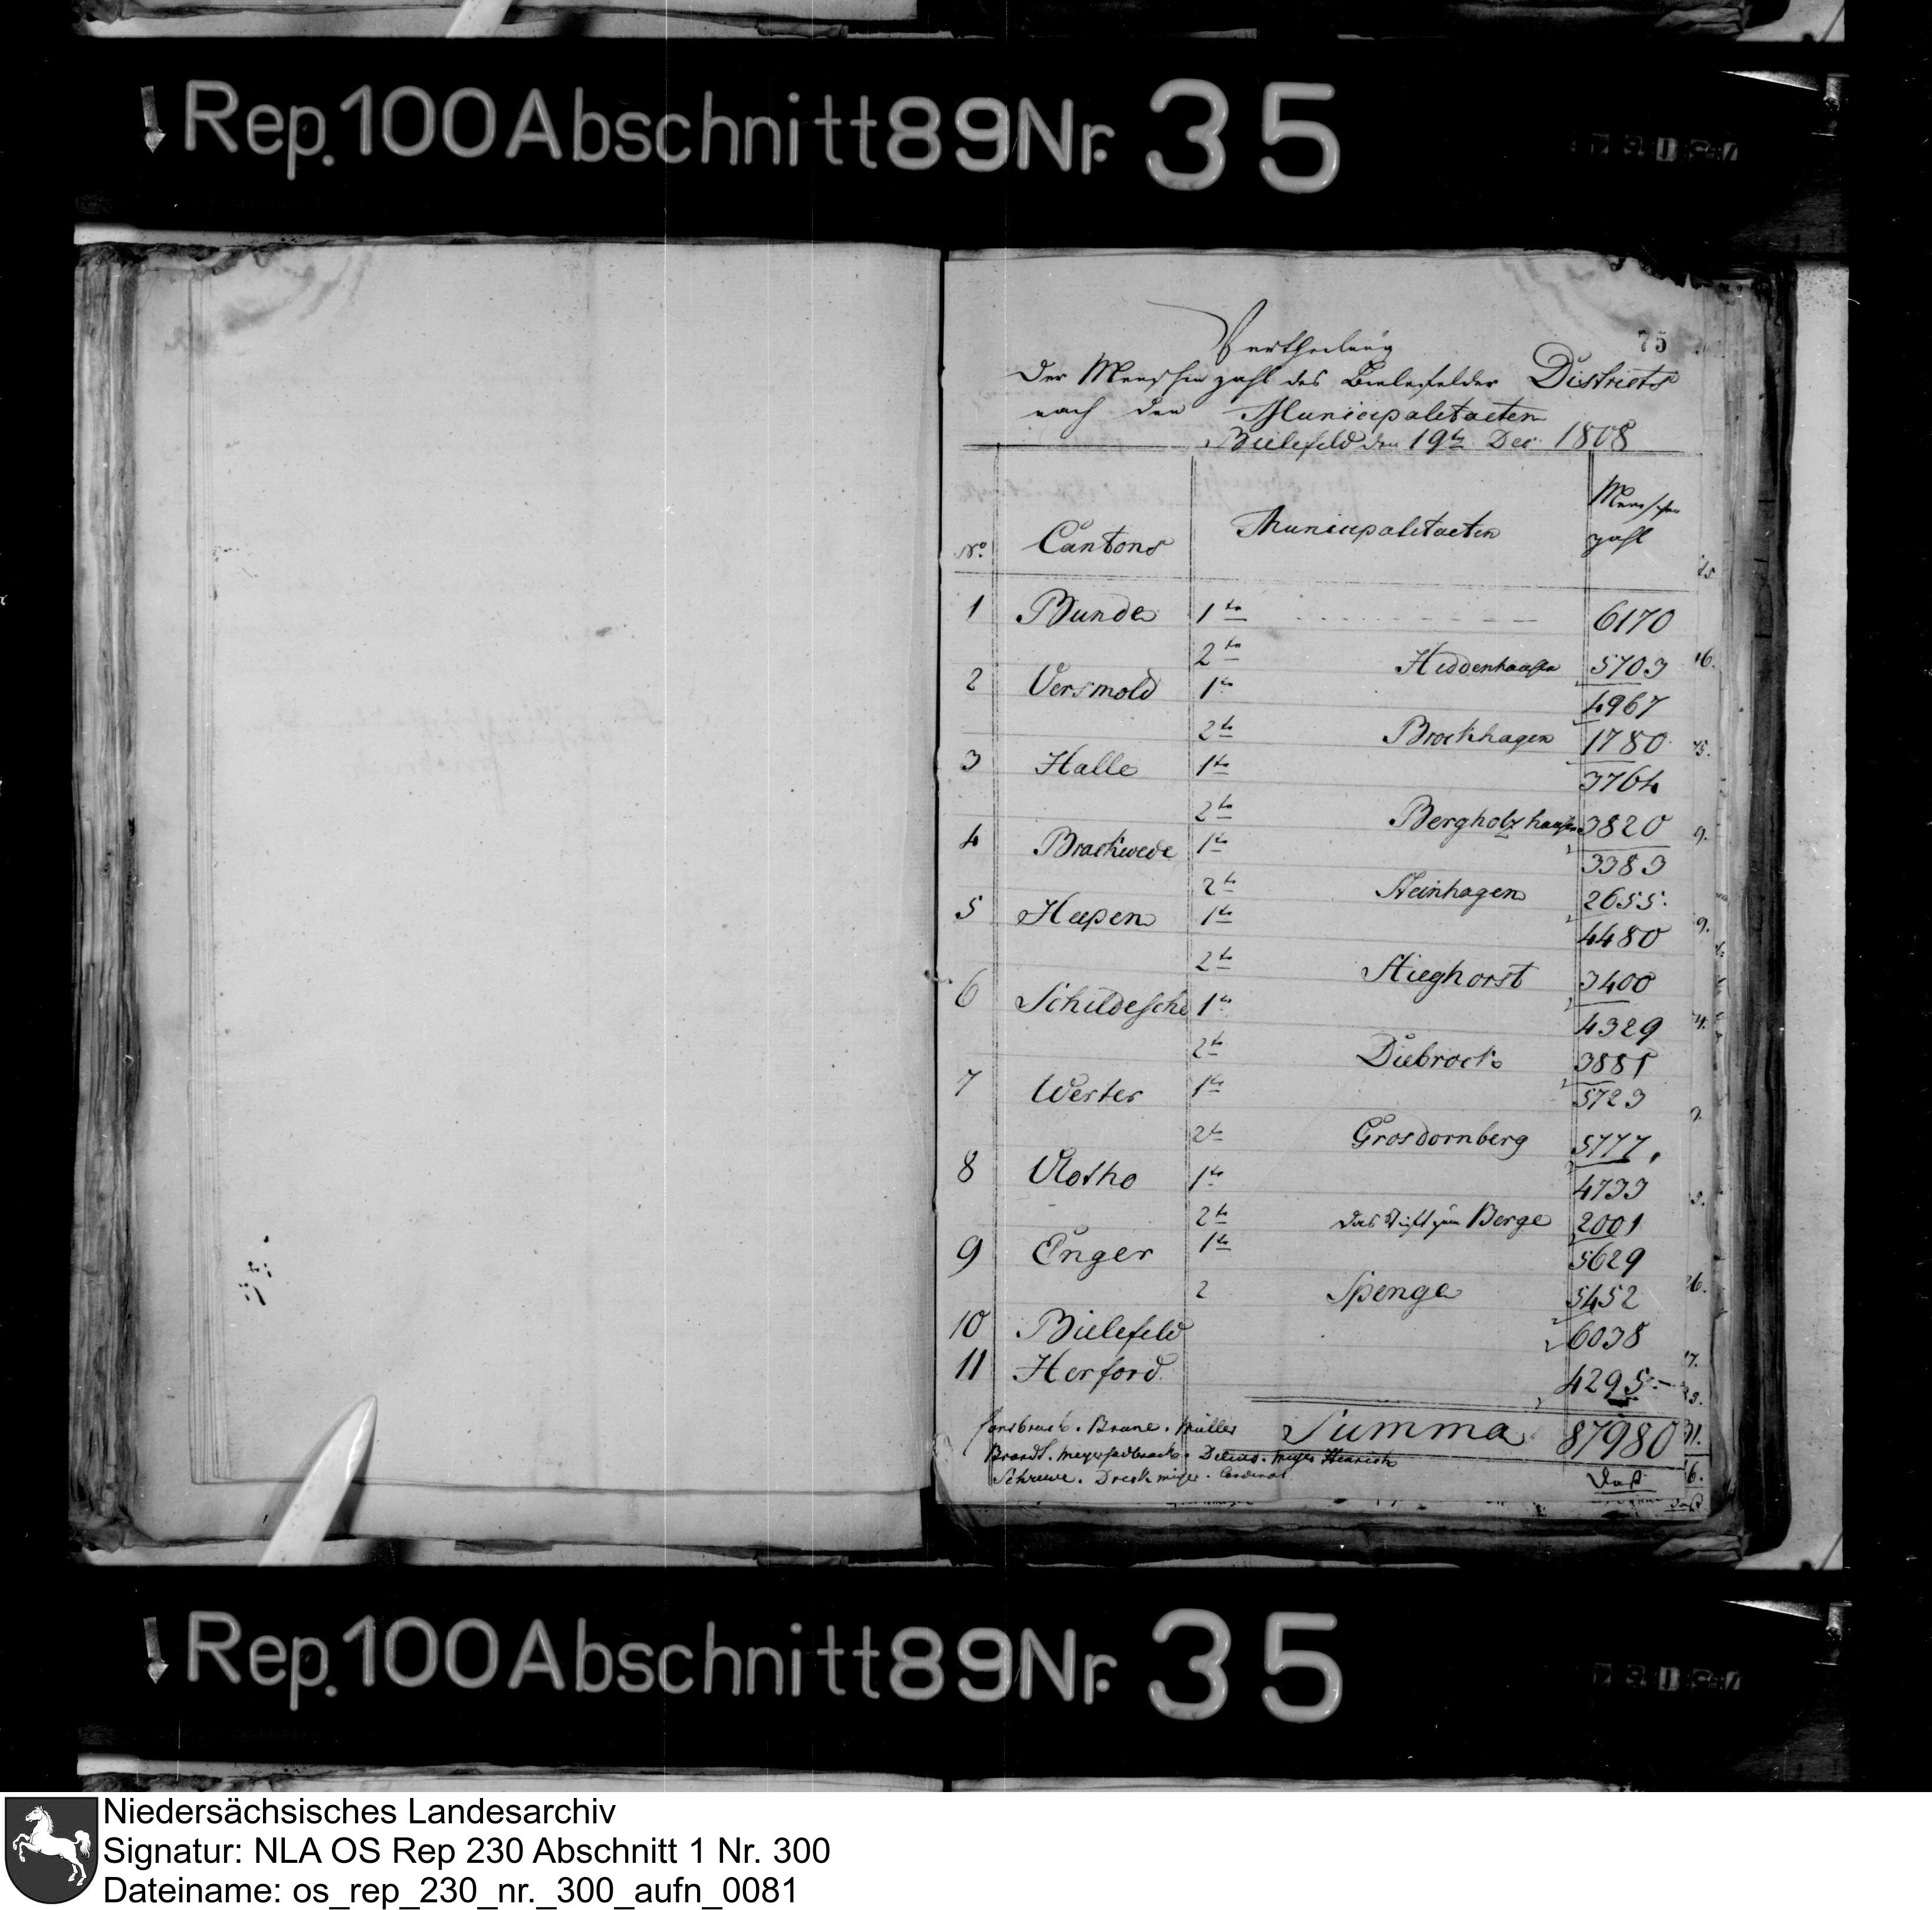 Rep. 100 Abschnitt 89 Nr. 35
75
Vertheilung
der Menschenzahl des Bielefelder Districts
nach den Municipalitaeten
Bielefeld den 19ten Dec. 1808
No. Cantons Municipalitaeten Menschen zahl
1 Bunde 1te 6170
2te Hiddenhausen 5703
2 Versmold 1te 4967
2te Brockhagen 1780
3 Halle 1te 3764
2te Bergholzhausen 3820
4 Brackwede 1te 3383
2te Steinhagen 2655
5 Heepen 1te 4480
2te Stieghorst 3400
6 Schildesche 1te 4329
2te Diebrock 3881
7 Werter 1te 5723
2te Grosdornberg 5777
8 Vlotho 1te 4733
2te das Stift zum Berge 2001
9 Enger 1te 5629
2 Spenge 5452
10 Bielefeld 6038
11 Herford 4295
Summa 87980
Consbruch. Brune. Müller
Brandt. Delius. Meyer Heinrich
Schreve. Cardinal
Rep. 100 Abschnitt 89 Nr. 35
Niedersächsisches Landesarchiv
Signatur: NLA OS Rep 230 Abschnitt 1 Nr. 300
Dateiname: os_rep_230_nr._300_aufn_0081